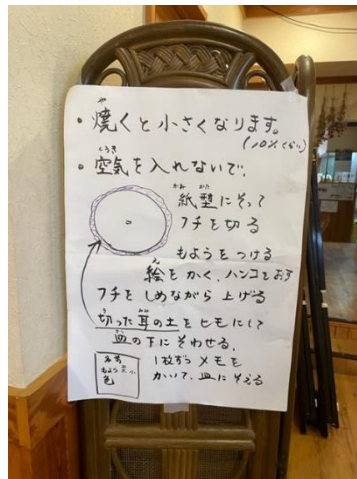 ・焼くと小さくなります。
(10%くらい)
・空気を入れないで。
紙型にそって
フチを切る
もようをつける
絵をかく、ハンコをおす
フチをしめながら上げる
切った茸の土をヒモにして
皿の下にそわせる。
1枚ずつメモを
かいて、皿にそえる
名前
もよう 大 小
色